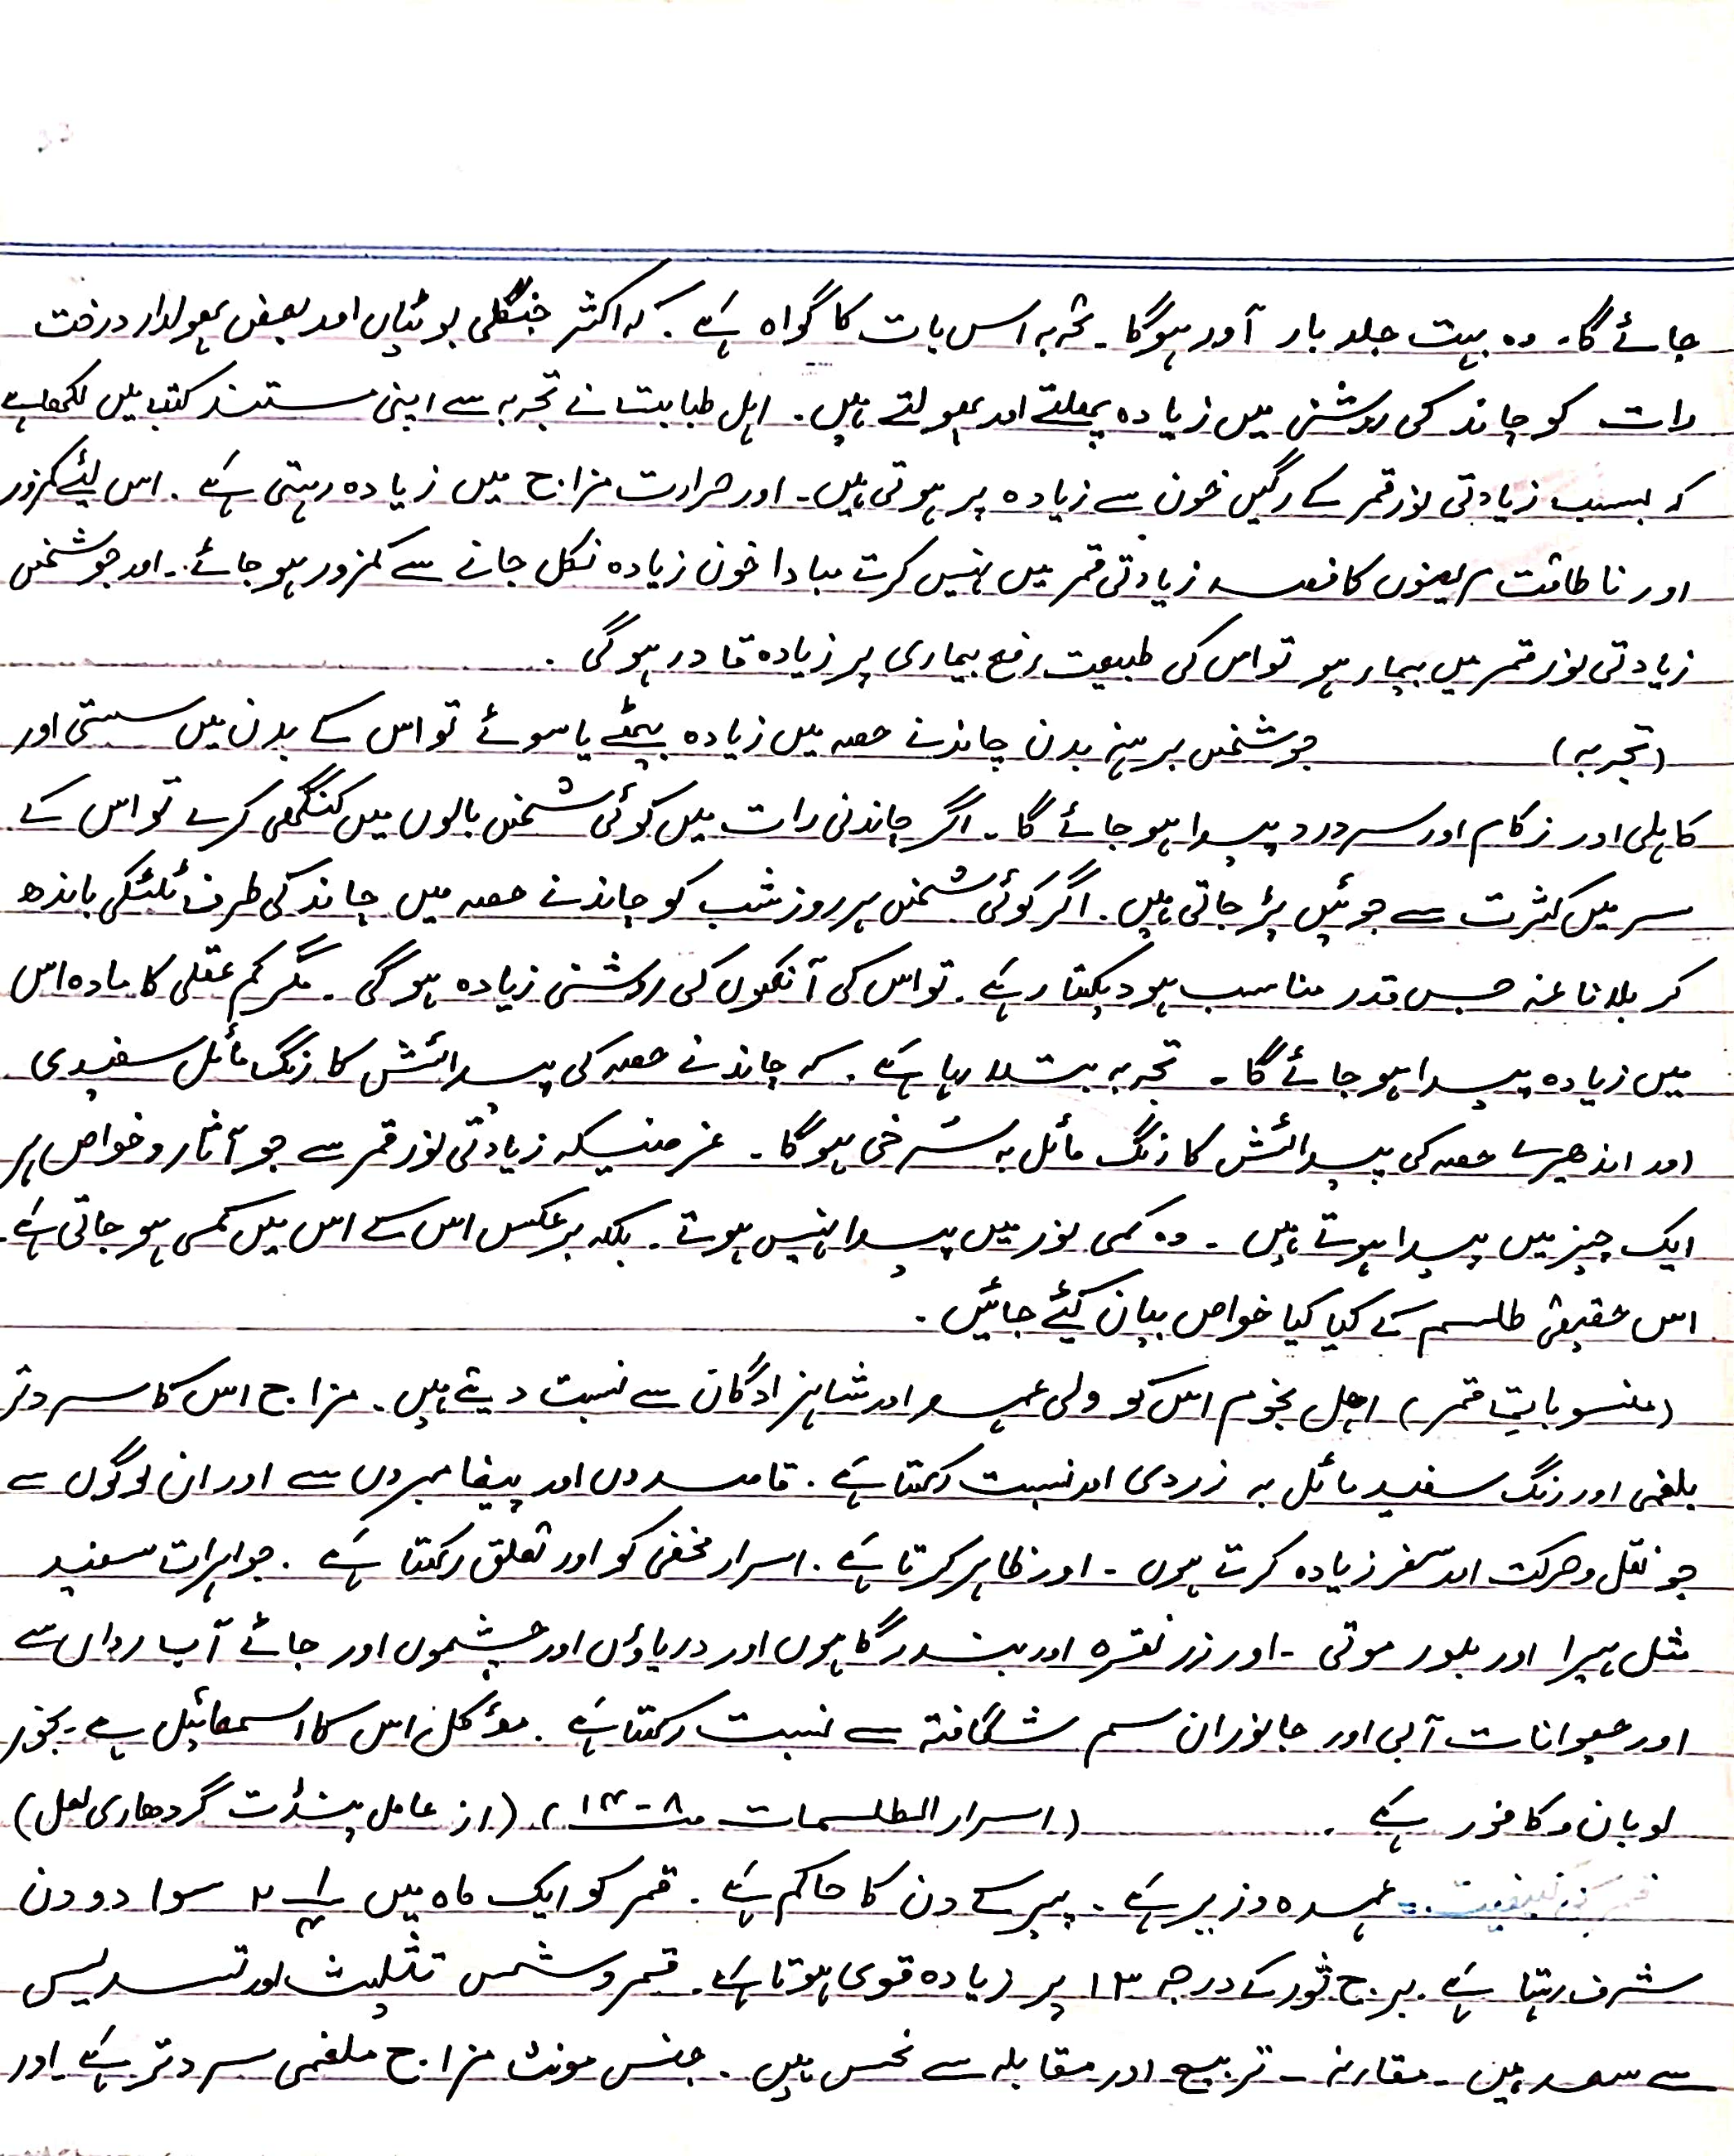 جائے گا۔ وہ بہت جلد بار آور ہوگا۔ تجربہ اس بات کا گواہ ہے۔ کہ اکثر جنگلی بوٹیاں اور بعض پھولدار درخت
رات کو چاند کی روشنی میں زیادہ پھلتے اور پھولتے ہیں۔ اہل طبابت نے تجربہ سے اپنی مستند کتب میں لکھا ہے
کہ بسبب زیادتی نور قمر کے رگیں خون سے زیادہ پر ہوتی ہیں۔ اور حرارت مزاج میں زیادہ رہتی ہے۔ اس لئے کمزور
اور ناطاقت مریضوں کا فصد زیادتی قمر میں نہیں کرتے مبادا خون زیادہ نکل جانے سے کمزور ہو جائے۔ اور جو شخص
زیادتی نور قمر میں بیمار ہو تو اس کی طبیعت رفع بیماری پر زیادہ قادر ہوگی۔
(تجربہ) جو شخص برہنہ بدن چاندنے حصہ میں زیادہ بیٹھے یا سوئے تو اس کے بدن میں سستی اور
کاہلی اور زکام اور سردرد پیدا ہو جائے گا۔ اگر چاندنی رات میں کوئی شخص بالوں میں کنگھی کرے تو اس کے
سر میں کثرت سے جوئیں پڑ جاتی ہیں۔ اگر کوئی شخص ہر روز شب کو چاندنے حصہ میں چاند کی طرف ٹکٹکی باندھ
کر بلا ناغہ جس قدر مناسب ہو دیکھتا رہے۔ تو اس کی آنکھوں کی روشنی زیادہ ہوگی۔ مگر کم عقلی کا مادہ اس
میں زیادہ پیدا ہو جائے گا۔ تجربہ بتلا رہا ہے۔ کہ چاندنے حصہ کی پیدائش کا رنگ مائل سفیدی
اور اندھیرے حصہ کی پیدائش کا رنگ مائل بہ سرخی ہوگا۔ غرضیکہ زیادتی نور قمر سے جو آثار و خواص ہر
ایک چیز میں پیدا ہوتے ہیں۔ وہ کمی نور میں پیدا نہیں ہوتے۔ بلکہ برعکس اس کے اس میں کمی ہو جاتی ہے۔
اس حقیقی طلسم کے کیا کیا خواص بیان کیئے جائیں۔
(منسوبات قمر) اہل نجوم اس کو ولی عہد اور شاہزادگان سے نسبت دیتے ہیں۔ مزاج اس کا سرد تر
بلغمی اور رنگ سفید مائل بہ زردی اور نسبت رکھتا ہے۔ قاصدوں اور پیغامبروں سے اور ان لوگوں سے
جو نقل و حرکت اور سفر زیادہ کرتے ہوں۔ اور ظاہر کرتا ہے۔ اسرار مخفی کو اور تعلق رکھتا ہے۔ جواہرات سفید
مثل ہیرا اور بلور موتی۔ اور زر نقرہ اور بندرگاہوں اور دریاؤں اور چشموں اور جائے آب رواں سے
اور حیوانات آبی اور جانوران سم شگافتہ سے نسبت رکھتا ہے۔ مؤکل اس کا اسمعائیل ہے۔ بخور
لوبان و کافور ہے۔ (اسرار الطلسمات ص ۸-۱۴) (از عامل پنڈت گردھاری لعل)
قمر کی کیفیت۔ عہدہ وزیر ہے۔ پیر کے دن کا حاکم ہے۔ قمر کو ایک ماہ میں ۲ ۱/۴ سوا دو دن
شرف رہتا ہے۔ برج ثور کے درجہ ۱۳ پر زیادہ قوی ہوتا ہے۔ قمر و شمس تثلیث اور تسدیس
سے سعد ہیں۔ مقارنہ۔ تربیع اور مقابلہ سے نحس ہیں۔ جنس مونث مزاج ملغمی سرد تر ہے۔ اور